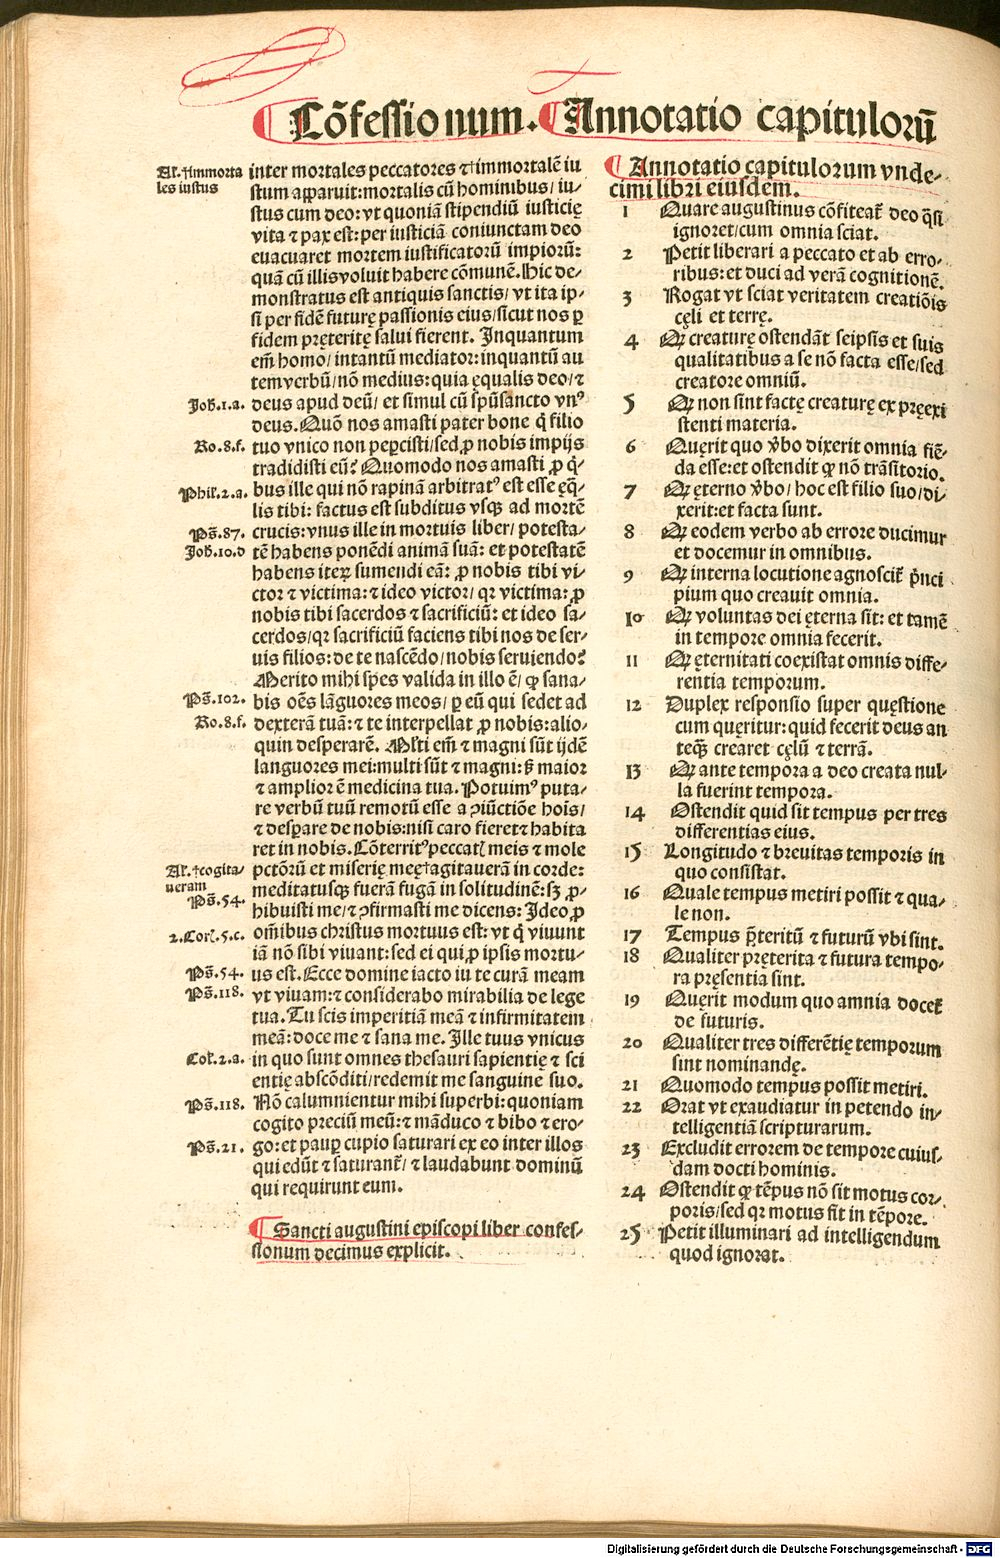 Cõfessionum. Annotatio capitulorū
Al. †immorta
les iustus
inter mortales peccatores ⁊ †immortalē iu
stum apparuit: mortalis cū hominibus/ iu⸗
stus cum deo: vt quoniā stipendiū iusticię
vita ⁊ pax est: per iusticiā coniunctam deo
euacuaret mortem iustificatorū impiorū:
quā cū illis voluit habere cōmunē. Hic de⸗
monstratus est antiquis sanctis/ vt ita ip⸗
si per fidē futurę passionis eius/ sicut nos ꝑ
fidem pręteritę salui fierent. Inquantum
em̄ homo/ intantū mediator: inquantū au
tem verbū/ nō medius: quia ęqualis deo/ ⁊
Joh̄.1.a.
deus apud deū/ et simul cū sp̄usancto vnꝰ
deus. Quō nos amasti pater bone q̇ filio
Ro.8.f.
tuo vnico non peꝑcisti/ sed ꝓ nobis impijs
tradidisti eū? Quomodo nos amasti ꝓ q̇⸗
Phil'.2.a.
bus ille qui nō rapinā arbitratꝰ est esse ęq̄⸗
lis tibi: factus est subditus vsqꝫ ad mortē
Ps̄.87.
crucis: vnus ille in mortuis liber/ potesta⸗
Joh̄.10.d
tē habens ponēdi animā suā: et potestatē
habens iteꝝ sumendi eā: ꝓ nobis tibi vi⸗
ctor ⁊ victima: ⁊ ideo victor/ qꝛ victima: ꝓ
nobis tibi sacerdos ⁊ sacrificiū: et ideo sa⸗
cerdos/ qꝛ sacrificiū faciens tibi nos de ser⸗
uis filios: de te nascēdo/ nobis seruiendo?
Merito mihi sp̄es valida in illo ē/ ꝙ sana⸗
Ps̄.102.
bis oēs lāguores meos/ ꝑ eū qui sedet ad
Ro.8.f.
dexterā tuā: ⁊ te interpellat ꝓ nobis: alio⸗
quin desperarē. Ml'ti em̄ ⁊ magni sūt ijdē
languores mei: multi sūt ⁊ magni: sꝫ maior
⁊ amplior ē medicina tua. Potuimꝰ puta⸗
re verbū tuū remotū esse a ꝯiūctiōe hoīs/
⁊ desꝑare de nobis: nisi caro fieret ⁊ habita
ret in nobis. Cōterritꝰ peccatꝭ meis ⁊ mole
Al. †cogita⸗
ueram
pctōrū et miserię męę †agitauerā in corde:
meditatusqꝫ fuerā fugā in solitudinē: sꝫ ꝓ⸗
Ps̄.54.
hibuisti me/ ⁊ ꝯfirmasti me dicens: Ideo ꝓ
2.Corꝭ.5.c.
om̄ibus christus mortuus est: vt q̇ viuunt
iā nō sibi viuant: sed ei qui ꝓ ipsis mortu⸗
Ps̄.54.
us est. Ecce domine iacto iu te curā meam
Ps̄.118.
vt viuam: ⁊ considerabo mirabilia de lege
tua. Tu scis imperitiā meā ⁊ infirmitatem
meā: doce me ⁊ sana me. Ille tuus vnicus
Col'.2.a.
in quo sunt omnes thesauri sapientię ⁊ sci
entię abscōditi/ redemit me sanguine suo.
Ps̄.118.
Nō calumnientur mihi superbi: quoniam
cogito preciū meū: ⁊ māduco ⁊ bibo ⁊ ero⸗
Ps̄.21.
go: et pauꝑ cupio saturari ex eo inter illos
qui edūt ⁊ saturant᷑/ ⁊ laudabunt dominū
qui requirunt eum.
¶ Sancti augustini episcopi liber confes⸗
sionum decimus explicit.
¶ Annotatio capitulorum vnde⸗
cimi libri eiusdem.
1 Quare augustinus cōfiteat᷑ deo q̄si
ignoret/ cum omnia sciat.
2 Petit liberari a peccato et ab erro⸗
ribus: et duci ad verā cognitionē.
3 Rogat vt sciat veritatem creatiōis
cęli et terrę.
4 Qꝙ creaturę ostendāt seipsis et suis
qualitatibus a se nō facta esse/ sed
creatore omniū.
5 Qꝙ non sint factę creaturę ex pręexi
stenti materia.
6 Quęrit quo v̄bo dixerit omnia fiē⸗
da esse: et ostendit ꝙ nō trāsitorio.
7 Qꝙ ęterno v̄bo/ hoc est filio suo/ di⸗
xerit: et facta sunt.
8 Qꝙ eodem verbo ab errore ducimur
et docemur in omnibus.
9 Qꝙ interna locutione agnoscit᷑ pṙnci
pium quo creauit omnia.
10 Qꝙ voluntas dei ęterna sit: et tamē
in tempore omnia fecerit.
11 Qꝙ ęternitati coexistat omnis diffe⸗
rentia temporum.
12 Duplex responsio super quęstione
cum quęritur: quid fecerit deus an
teqꝫ̄ crearet cęlū ⁊ terrā.
13 Qꝙ ante tempora a deo creata nul⸗
la fuerint tempora.
14 Ostendit quid sit tempus per tres
differentias eius.
15 Longitudo ⁊ breuitas temporis in
quo consistat.
16 Quale tempus metiri possit ⁊ qua⸗
le non.
17 Tempus p̄teritū ⁊ futurū vbi sint.
18 Qualiter pręterita ⁊ futura tempo⸗
ra pręsentia sint.
19 Quęrit modum quo amnia docet᷑
de futuris.
20 Qualiter tres differētię temporum
sint nominandę.
21 Quomodo tempus possit metiri.
22 Orat vt exaudiatur in petendo in⸗
telligentiā scripturarum.
23 Excludit errorem de tempore cuius⸗
dam docti hominis.
24 Ostendit ꝙ tēpus nō sit motus cor⸗
poris/ sed qꝛ motus fit in tēpore.
25 Petit illuminari ad intelligendum
quod ignorat.
Digitalisierung gefördert durch die Deutsche Forschungsgemeinschaft - DFG